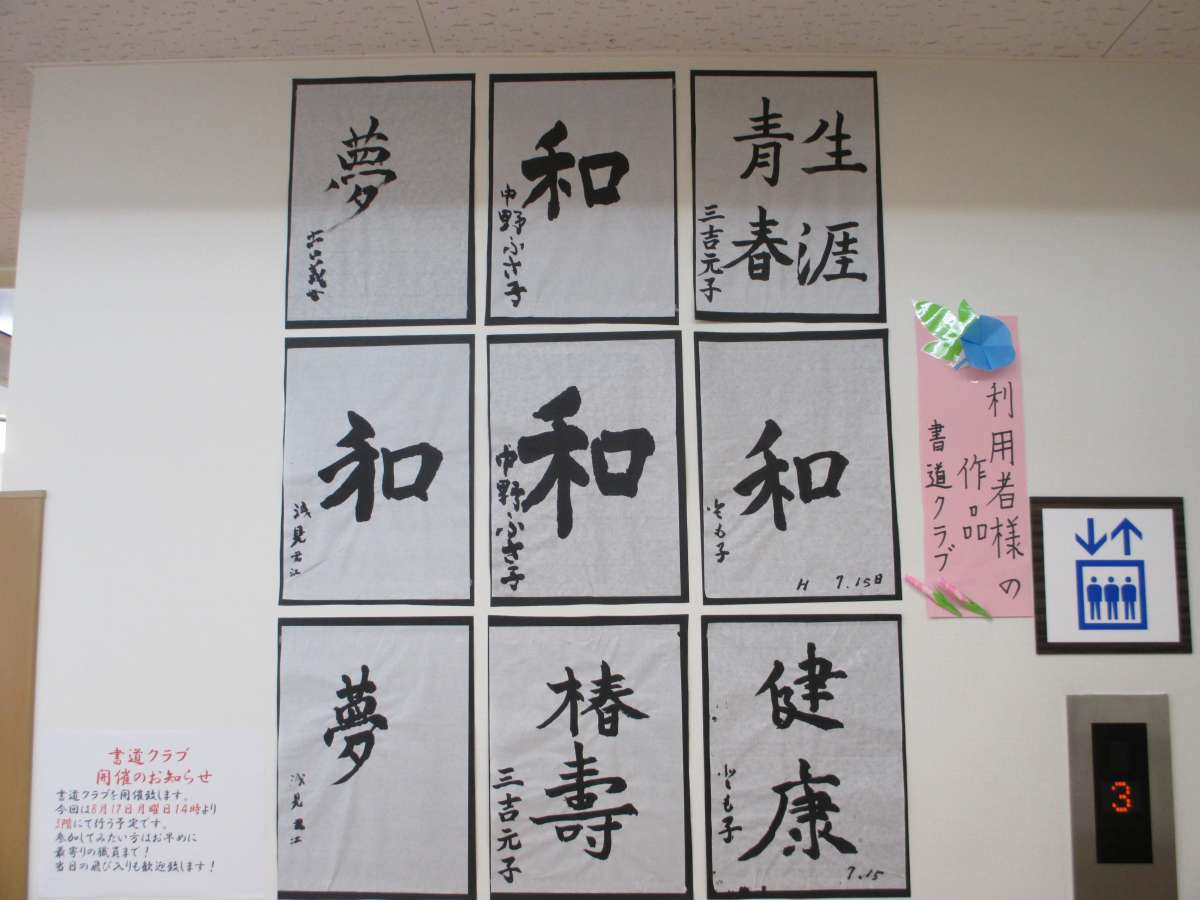 夢
和
中野ふさ子
生涯
青春
三吉元子
和
浅見
和
中野ふさ子
和
とも子
H 7.15日
夢
浅見
椿寿
三吉元子
健康
とも子
7.15
利用者様の
作品
書道クラブ
3
書道クラブ
開催のお知らせ
書道クラブを開催致します。
今回は8月17日月曜日14時より
3階にて行う予定です。
参加してみたい方はお早めに
最寄りの職員まで!
当日の飛び入りも歓迎致します!